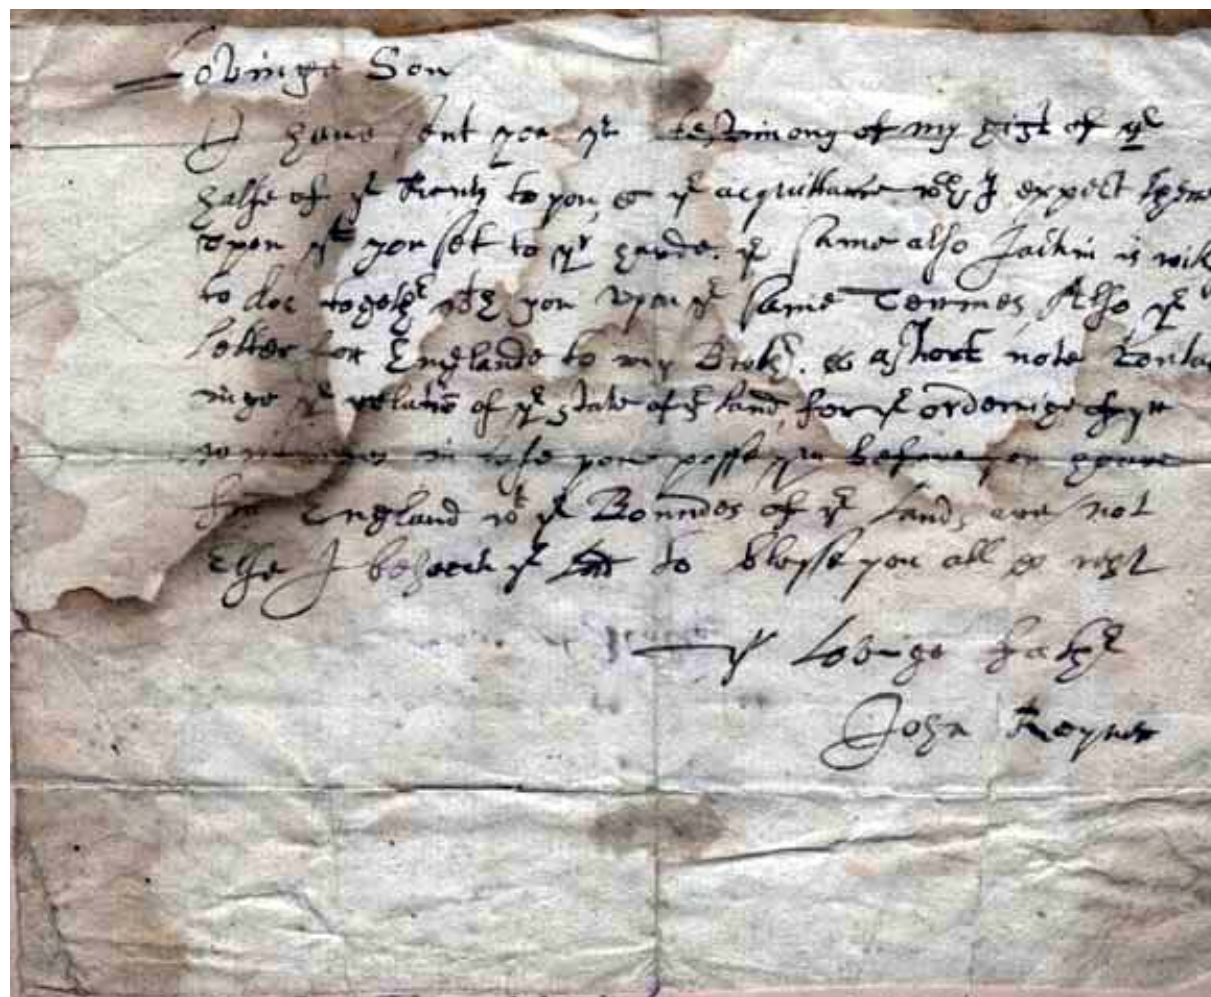 Lovinge Son
I have sent you ye testimony of my gift of ye
halfe of ye Rents to you, & ye acquittance wch I expect
upon yt you set to yr hande. ye same also Jachin is
to doe togethr wth you upon ye same Termes Also ye
letter for Englande to my Brothr. & a short note
ye relation of ye state of ye land, for ye orderinge of
in case you before you
for England wt ye Boundes of ye Lands are not
Else I beseech ye Lord to blesse you all & rest
yr Lovinge Fathr
John Reyner